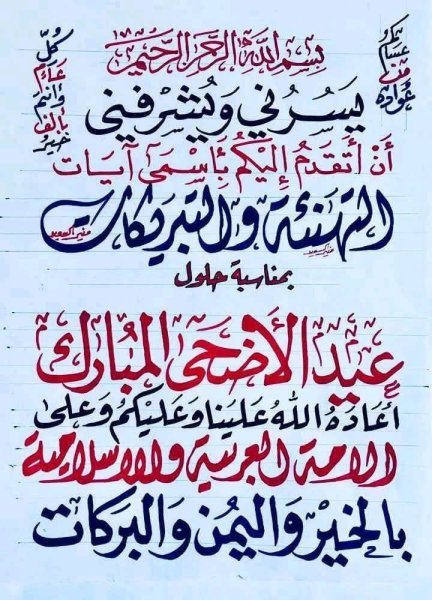 بسم الله الرحمن الرحيم
عساكم من عواده
كل عام وأنتم بألف خير
يسرني ويشرفني
أن أتقدم إليكم بأسمى آيات
التهنئة والتبريكات
منير السعيد
منير السعيد
بمناسبة حلول
عيد الأضحى المبارك
أعاده الله علينا وعليكم وعلى
الامة العربية والاسلامية
بالخير واليمن والبركات